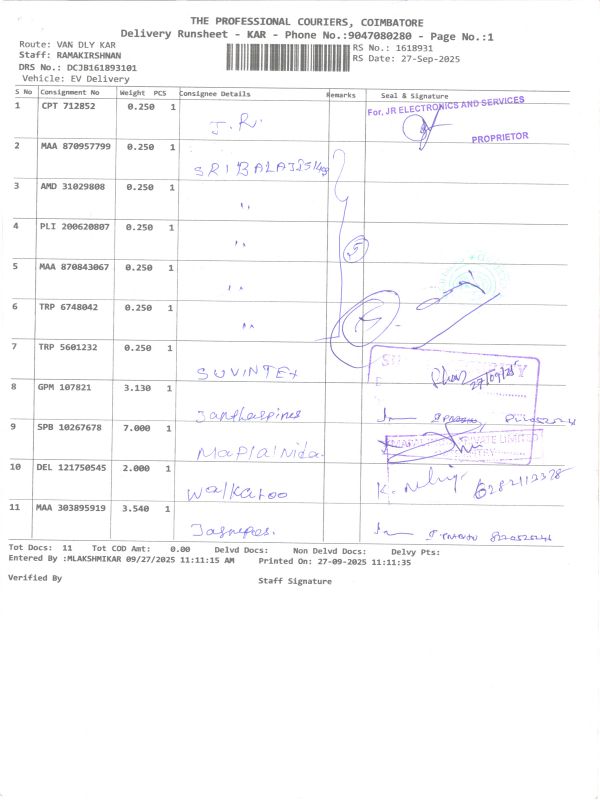 THE PROFESSIONAL COURIERS, COIMBATORE
Delivery Runsheet - KAR - Phone No.:9047080280 - Page No.:1
Route: VAN DLY KAR
RS No.: 1618931
Staff: RAMAKIRSHNAN
RS Date: 27-Sep-2025
DRS No.: DCJB161893101
Vehicle: EV Delivery
S No Consignment No Weight PCS Consignee Details Remarks Seal & Signature
1 CPT 712852 0.250 1 J.R. For, JR ELECTRONICS AND SERVICES
PROPRIETOR
2 MAA 870957799 0.250 1 SRI BALAJI
3 AMD 31029808 0.250 1 ''
4 PLI 200620807 0.250 1 ''
5
5 MAA 870843067 0.250 1 ''
6 TRP 6748042 0.250 1 ''
7 TRP 5601232 0.250 1 SUVINTEX 27/09/25
8 GPM 107821 3.130 1
9 SPB 10267678 7.000 1 PRIVATE LIMITED
10 DEL 121750545 2.000 1 Walkaroo
11 MAA 303895919 3.540 1
Tot Docs: 11 Tot COD Amt: 0.00 Delvd Docs: Non Delvd Docs: Delvy Pts:
Entered By :MLAKSHMIKAR 09/27/2025 11:11:15 AM Printed On: 27-09-2025 11:11:35
Verified By Staff Signature